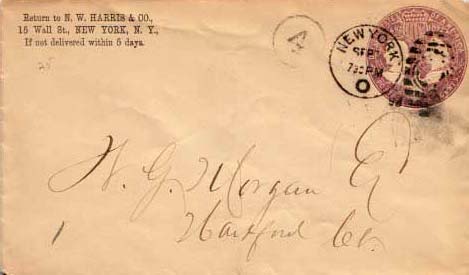 Return to N. W. HARRIS & CO.,
15 Wall St., NEW YORK, N. Y.,
If not delivered within 5 days.
25
4
NEW YORK
SEP
7 30 PM
O
W. G. Morgan E
Hartford Co.
1